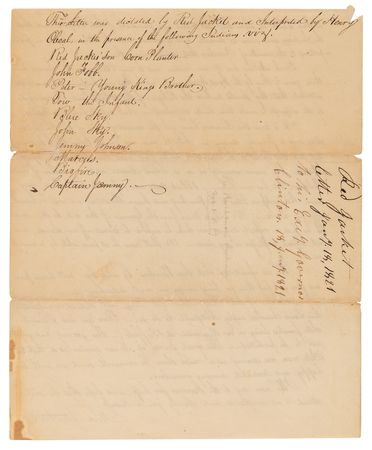 This letter was dictated by Red Jacket and Interpreted by Henry
Obeal in the presence of the following Indians viz.
Red Jackets son Corn Planter
John Cobb.
Peter – Young Kings Brother.
Tom the Infant.
Blue Sky.
John Sky.
Jemmy Johnson.
Marcus.
Bigfire.
Captain Jemmy.
Red Jacket
letter Jany. 18, 1821
To his Excy. Governor
Clinton. 18, Jany. 1821